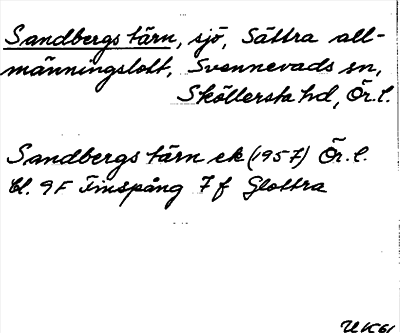 Sandbergs tärn, sjö, Sättra all-
männingslott, Svennevads sn,
Sköllersta hd, Ör.l.
Sandbergs tärn ek (1957) Ör.l.
bl. 9F Finspång 7f Glottra